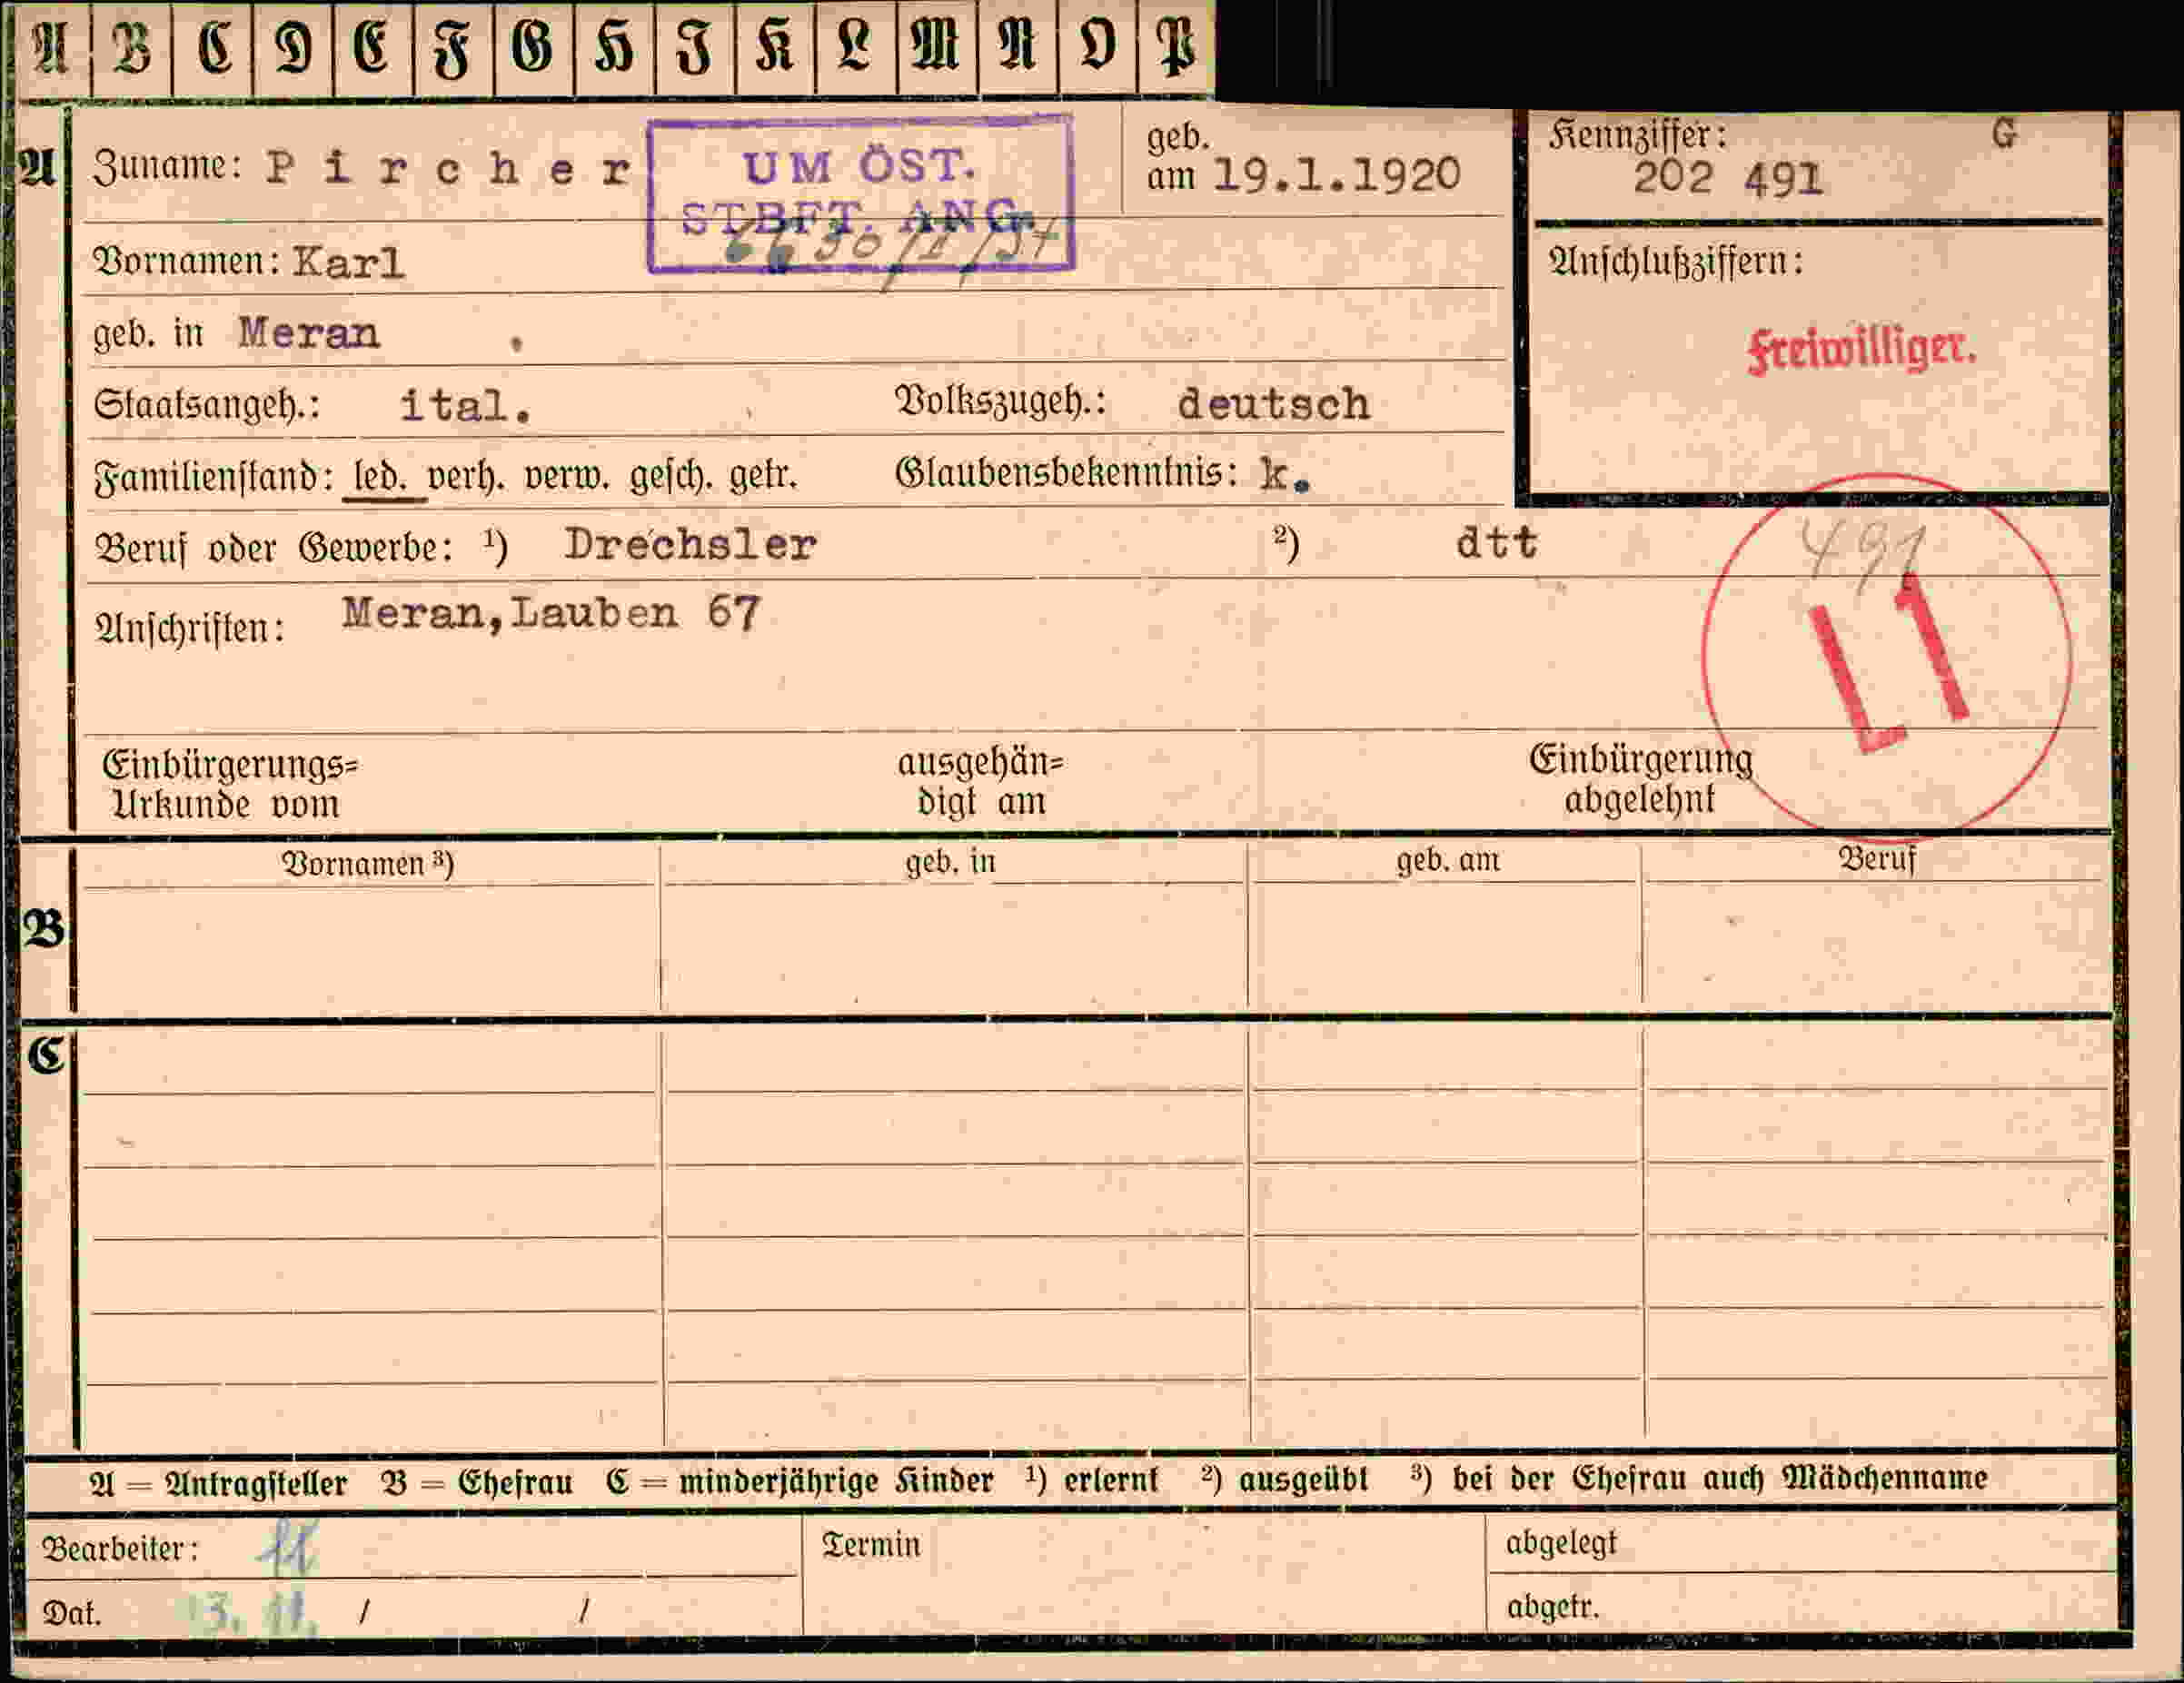 A B C D E F G H I K L M N O P
A Zuname: Pircher geb. am 19.1.1920
UM ÖST.
STBFT. ANG.
Kennziffer: G
202 491
Vornamen: Karl
Anschlußziffern:
geb. in Meran .
Freiwilliger.
Staatsangeh.: ital. Volkszugeh.: deutsch
Familienstand: led. verh. verw. gesch. getr. Glaubensbekenntnis: k.
Beruf oder Gewerbe: ¹) Drechsler ²) dtt
491
Anschriften: Meran, Lauben 67
L1
Einbürgerungs= ausgehän= Einbürgerung
Urkunde vom digt am abgelehnt
Vornamen ³) geb. in geb. am Beruf
B
C
A = Antragsteller B = Ehefrau C = minderjährige Kinder ¹) erlernt ²) ausgeübt ³) bei der Ehefrau auch Mädchenname
Bearbeiter: Termin abgelegt
Dat. 13. 11. / / abgetr.